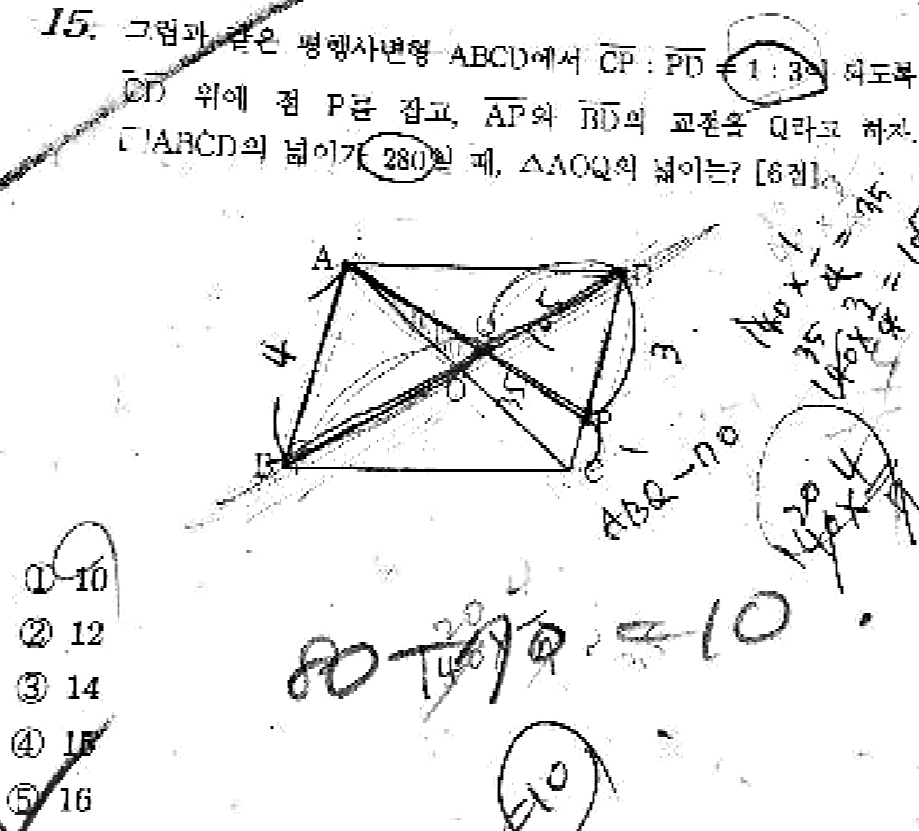 15. 그림과 같은 평행사변형 ABCD에서 CP : PD = 1 : 3이 되도록
CD 위에 점 P를 잡고, AP와 BD의 교점을 Q라고 하자.
□ABCD의 넓이가 280일 때, △AOQ의 넓이는? [6점]
A
D
Q
4
15
3
O
35
P
B
C
1
140 × 1/4 = 35
35
ABQ - 110
20
80 -
= 10
① 10
② 12
③ 14
④ 15
⑤ 16
10